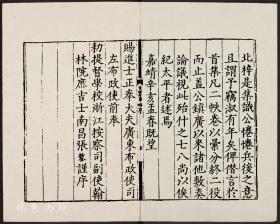 北椊是集識公惓惓兵後之意
且謂予竊淑有年矣俾僣言於
首集凡二帙卷以彙分終二役
而止蓋公鎮廣以來諸他敷奏
論議視此殆什之七八尚以俟
紀太平者述焉
嘉靖辛亥孟春既望
賜進士正奉大夫廣東布政使司
左布政使前奉
勑提督學校浙江按察司副使翰
林院庶吉士南昌張鏊謹序